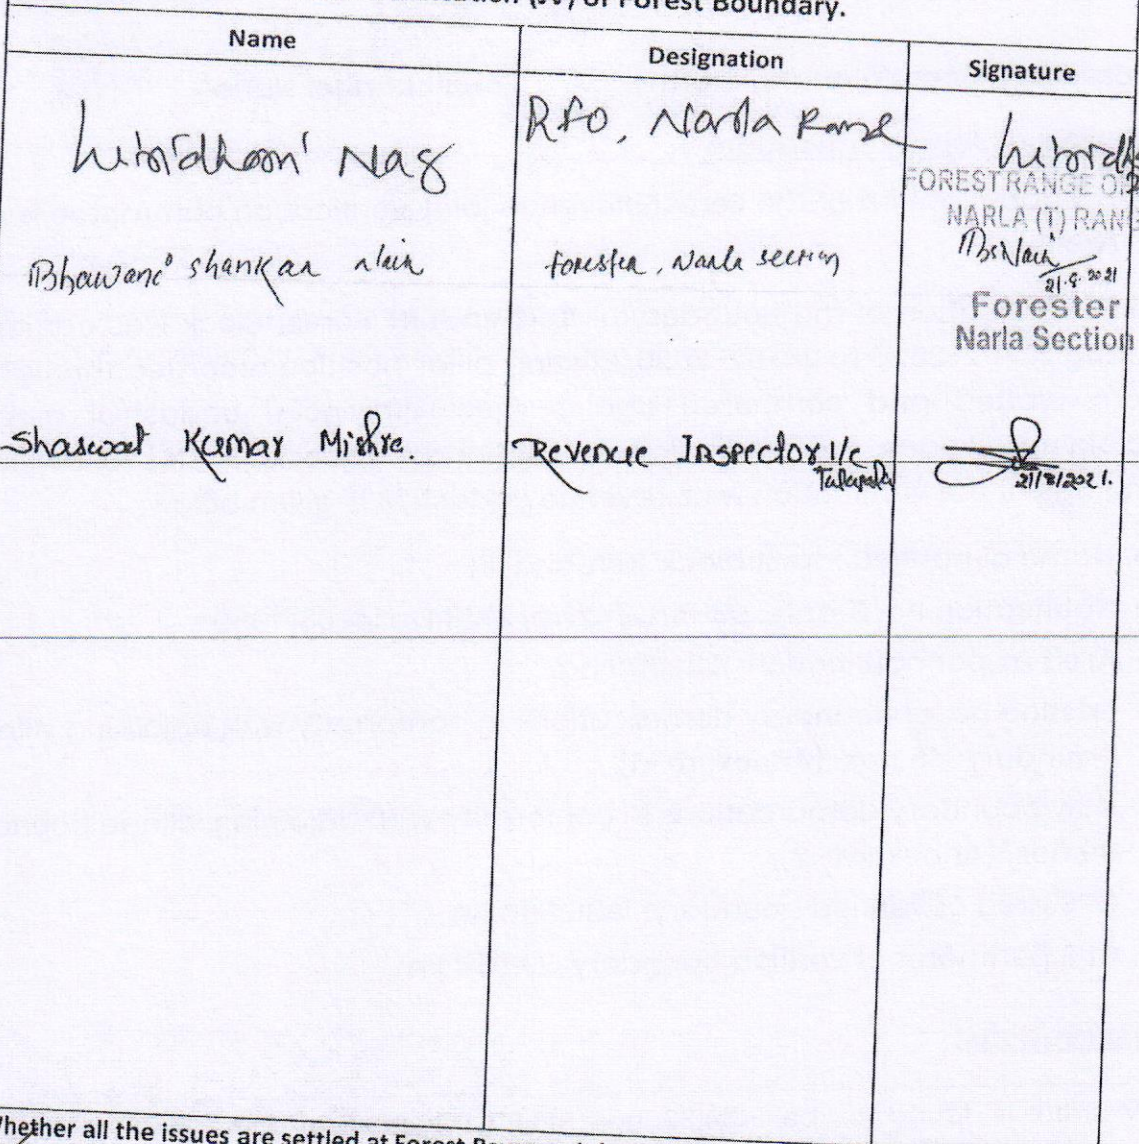 of Forest Boundary.
Name Designation Signature
Nag RFO, Narla Range
FOREST RANGE
NARLA (T) RANG
Bhawani Shankar Naik Forester, Narla section BSNaik
21.8.2021
Forester
Narla Section
Shaswat Kumar Mishra. Revenue Inspector I/c
21/8/2021.
Whether all the issues are settled at Forest